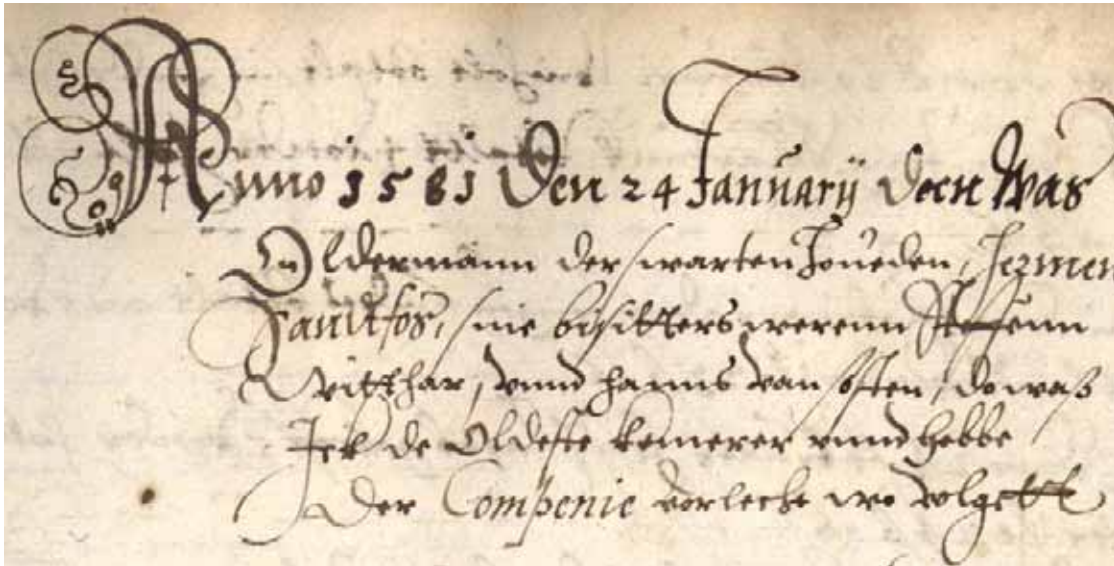 Anno 1581 Den 24 Januarij Den Was
Oldermann der swarten Höueden, Jezmen
sine bisitters werenn Steffenn
Witthar, vnnd hanns van osten, do waß
Jck de Oldeste kemerer vnnd hebbe
Der Compenie vorlecht wo volgett